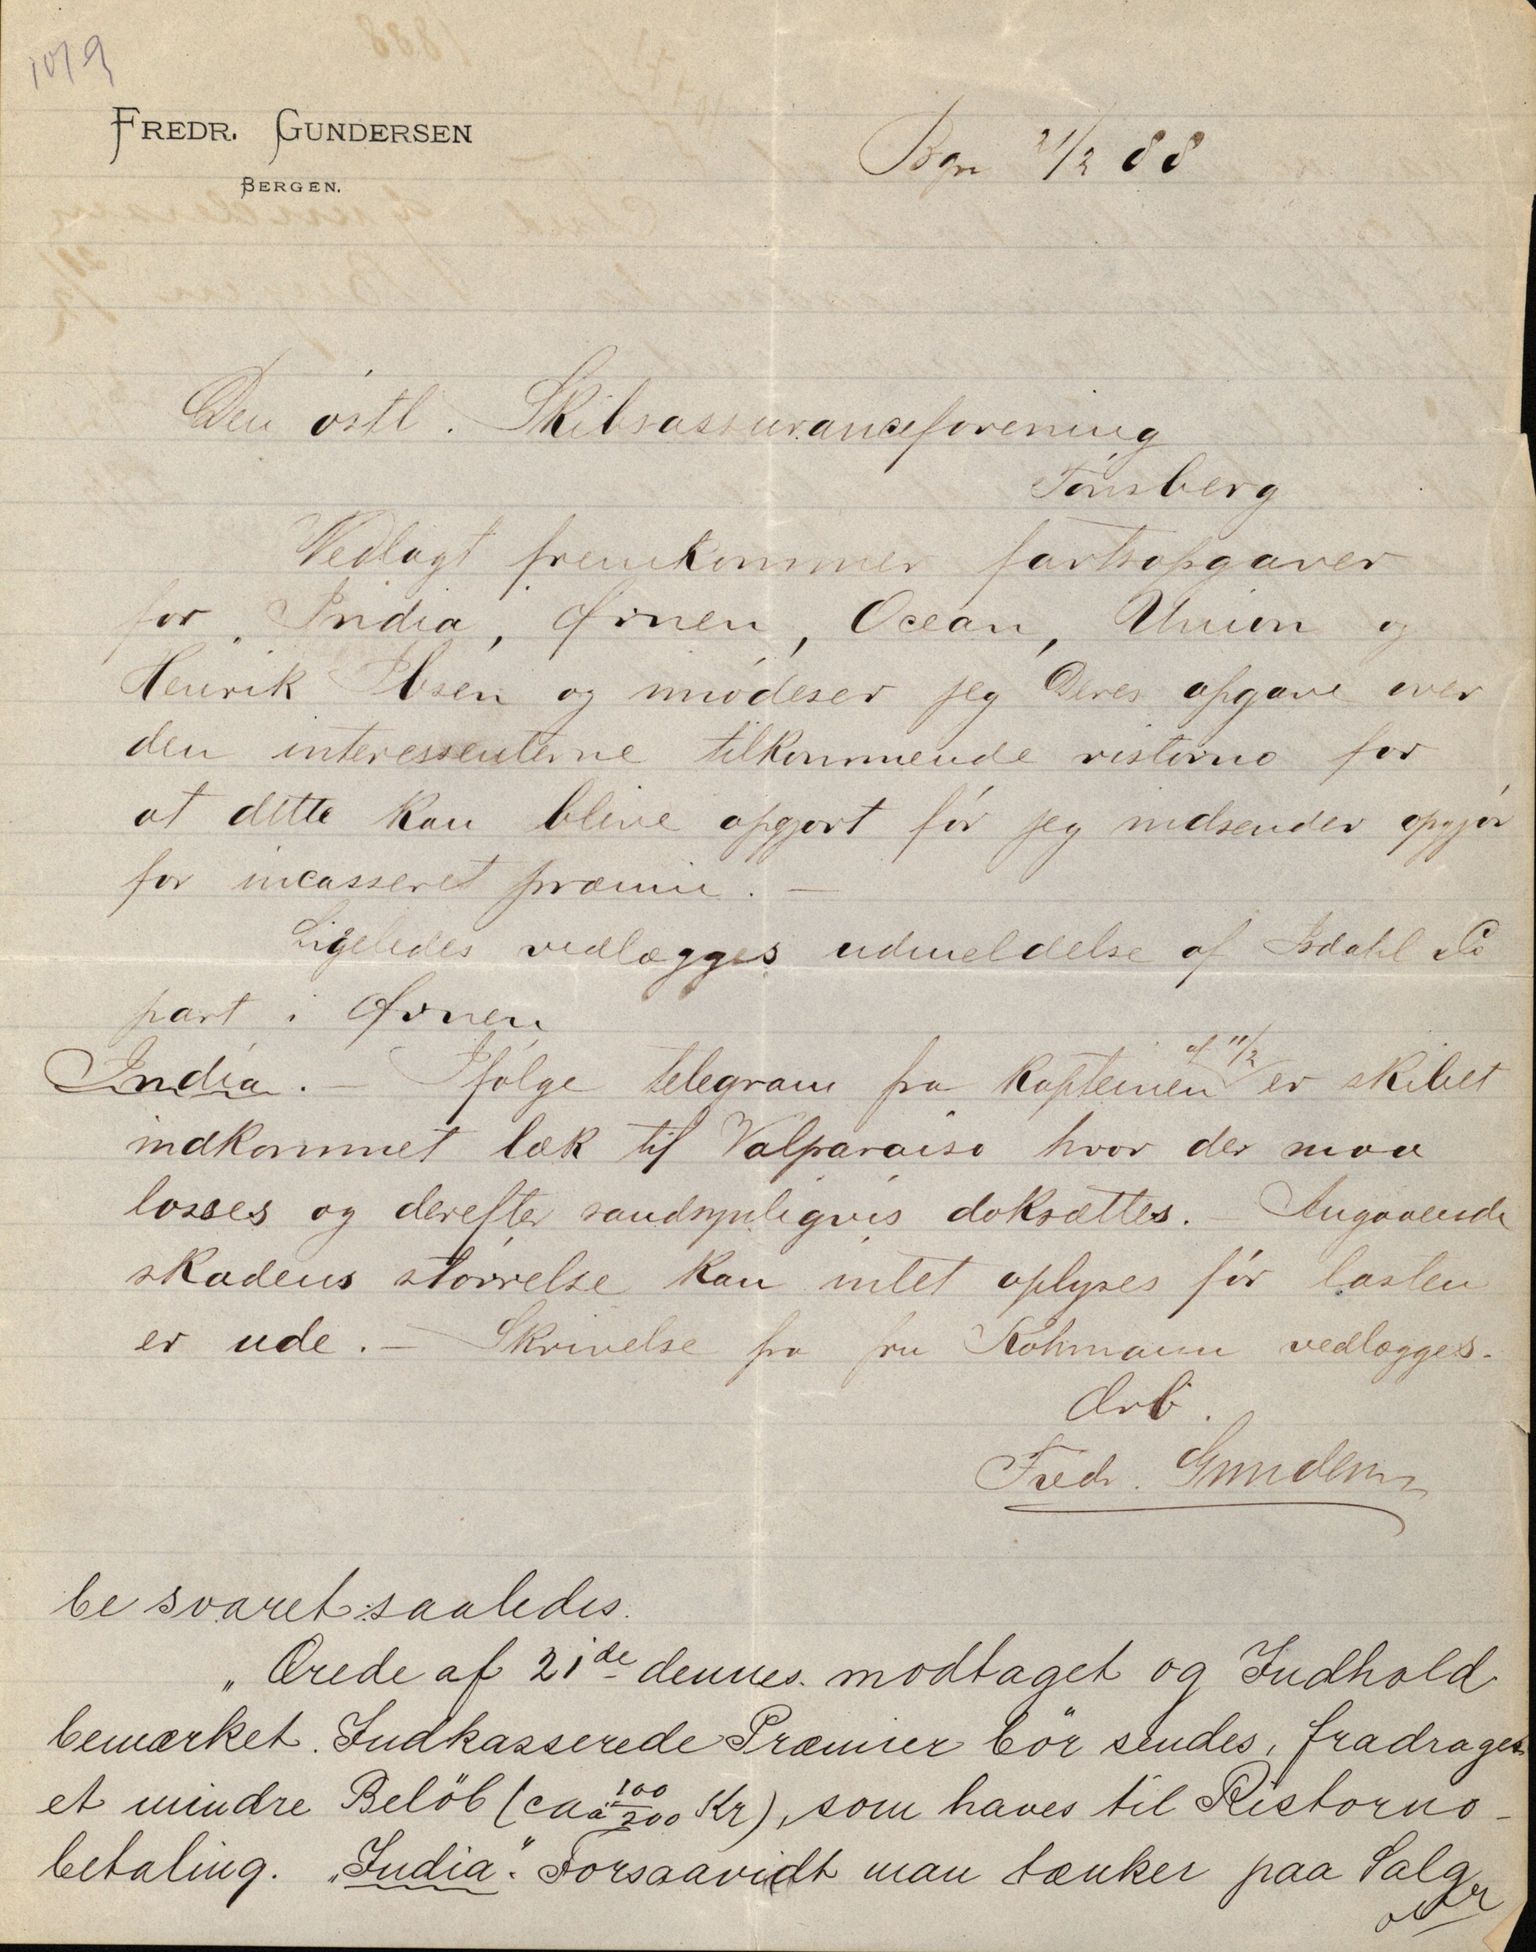 1019
FREDR. GUNDERSEN
BERGEN.
Bgn 21/2 88
Den östl. Skibsassuranceforening
Tönsberg
Vedlagt fremkommer fartsopgaver
for India, Ørnen, Ocean, Union og
Henrik Ibsen og imödeser jeg Deres opgave over
den interessenterne tilkommende ristorno for
at dette kan blive opgjort för jeg indsender opgjör
for incasseret præmie. —
Ligeledes vedlægges udmeldelse af Isdahl & Co
part i Ørnen
India. — Ifölge telegram fra kapteinen af 11/2 er skibet
indkommet læk til Valparaiso hvor der maa
losses og derefter sandsynligvis doksættes. — Angaaende
skadens störrelse kan intet oplyses för lasten
er ude. — Skrivelse fra fru Kohmann vedlægges.
Ærb.
Fredr. Gundersen
besvaret saaledes.
„Ærede af 21de dennes modtaget og Indhold
bemærket. Indkasserede Præmier bör sendes, fradraget
et mindre Belöb (ca a 100/200 Kr), som haves til Ristorno-
betaling. „India". Forsaavidt man tænker paa Salg